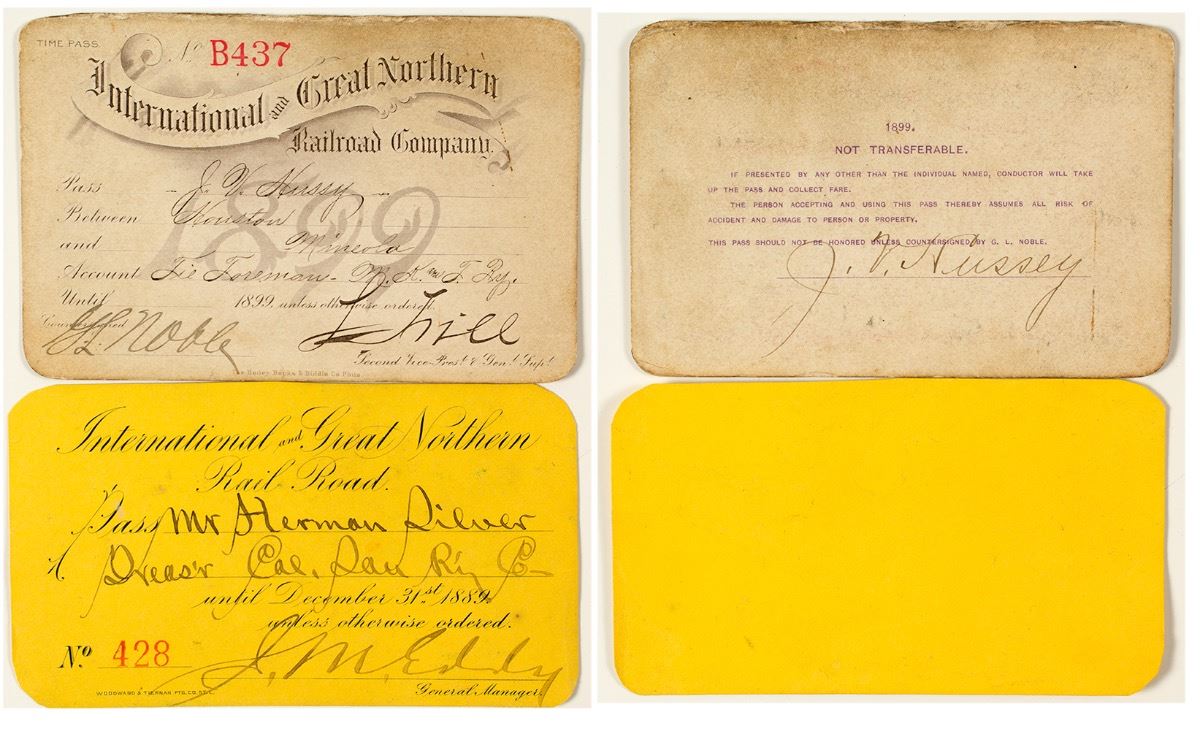 TIME PASS.
No. B437
International and Great Northern
Railroad Company.
Pass - J. V. Hussy -
Between Houston
and Mineola
Account Tie Foreman - M. K. and T. Ry.
Until 1899, unless otherwise ordered.
Countersigned
G L Noble
Second Vice-Prest. & Genl. Supt.
The Bailey Banks & Biddle Co Phila.
International and Great Northern
Rail Road.
Pass Mr Herman Silver
A. Treas'r Cal. Ry Co
until December 31st. 1889.
unless otherwise ordered.
No. 428
J. M. Eddy
WOODWARD & TIERNAN PTG. CO. ST. L.
General Manager.
1899.
NOT TRANSFERABLE.
IF PRESENTED BY ANY OTHER THAN THE INDIVIDUAL NAMED, CONDUCTOR WILL TAKE
UP THE PASS AND COLLECT FARE.
THE PERSON ACCEPTING AND USING THIS PASS THEREBY ASSUMES ALL RISK OF
ACCIDENT AND DAMAGE TO PERSON OR PROPERTY.
THIS PASS SHOULD NOT BE HONORED UNLESS COUNTERSIGNED BY G. L. NOBLE.
J. V. Hussey